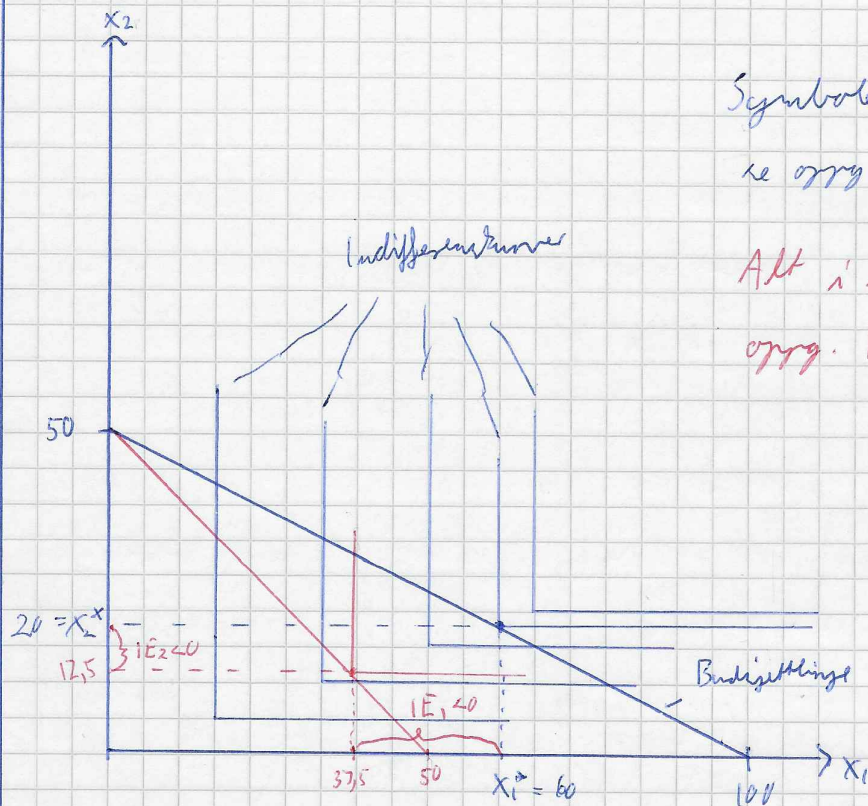 X2
Symbol
se oppg
Indifferenskurver
Alt i
oppg.
50
20 = X2*
12,5
IE2<0
IE1<0
Budsjettlinje
37,5
50
X1* = 60
100
X1